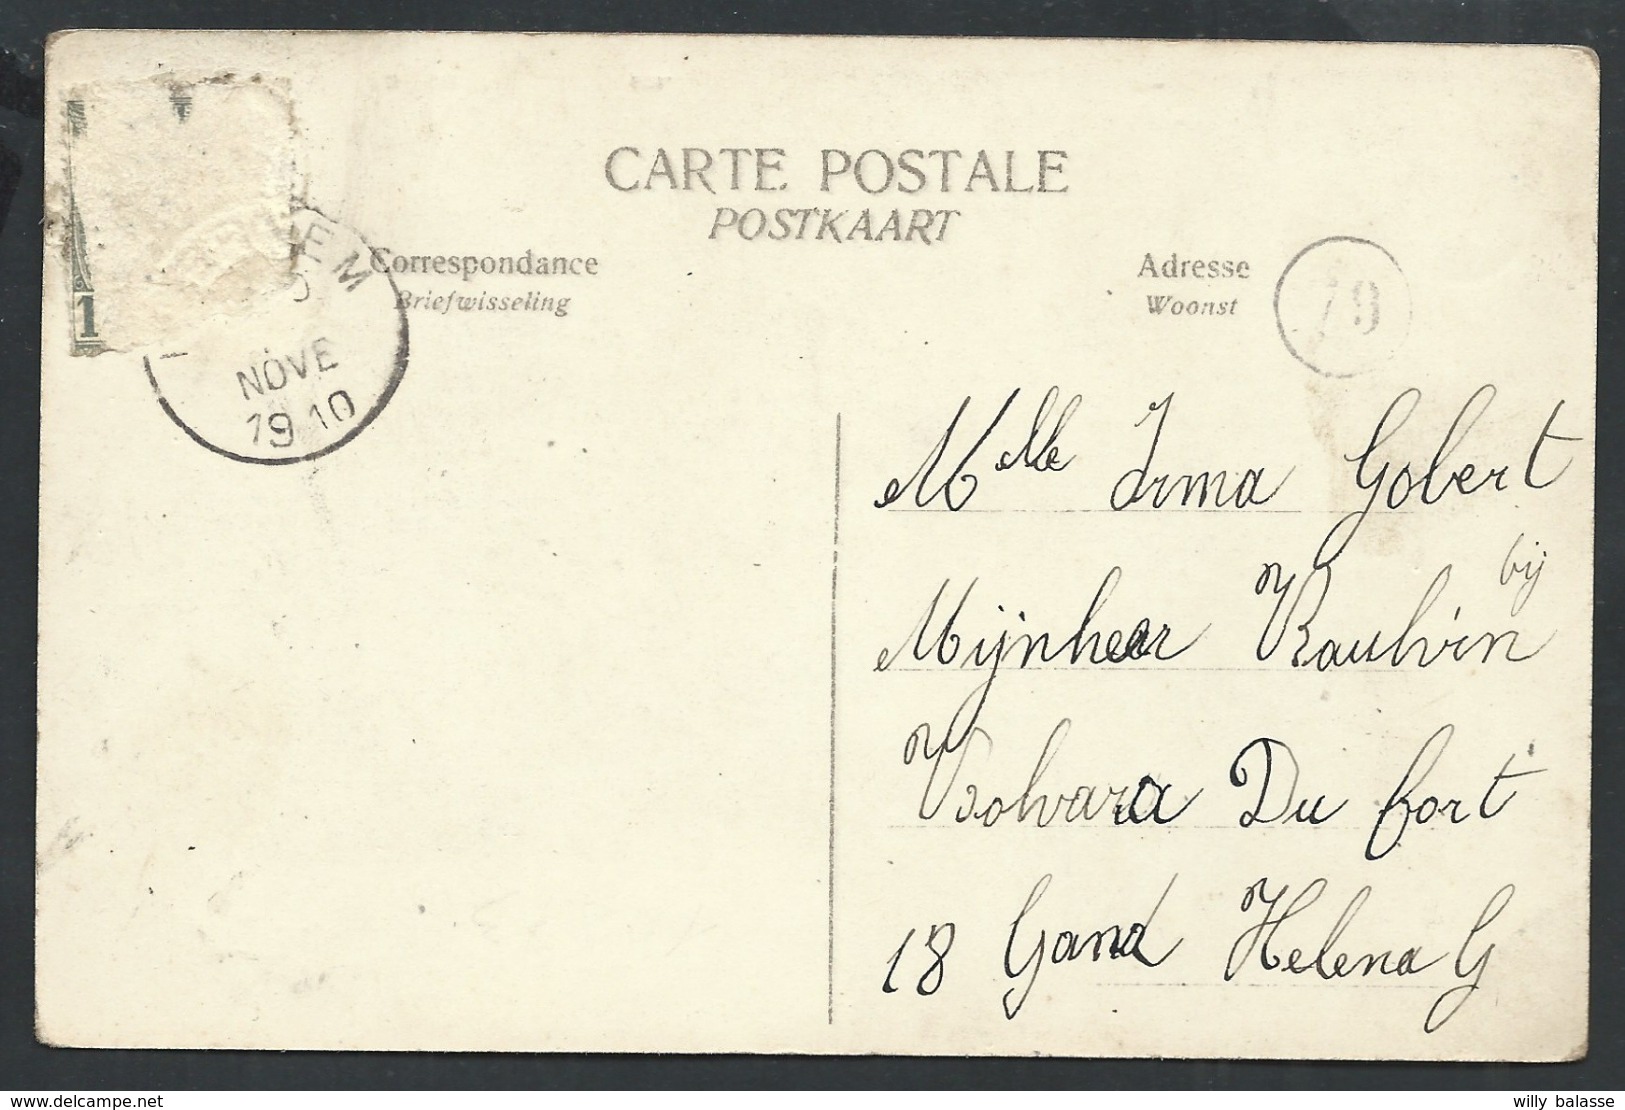 CARTE POSTALE
POSTKAART
Correspondance
Briefwisseling
Adresse
Woonst
1
NOVE
1910
Mlle Irma Gobert
bij
Mijnheer
Du fort
18 Gand Helena G
delcampe.net
willy balasse